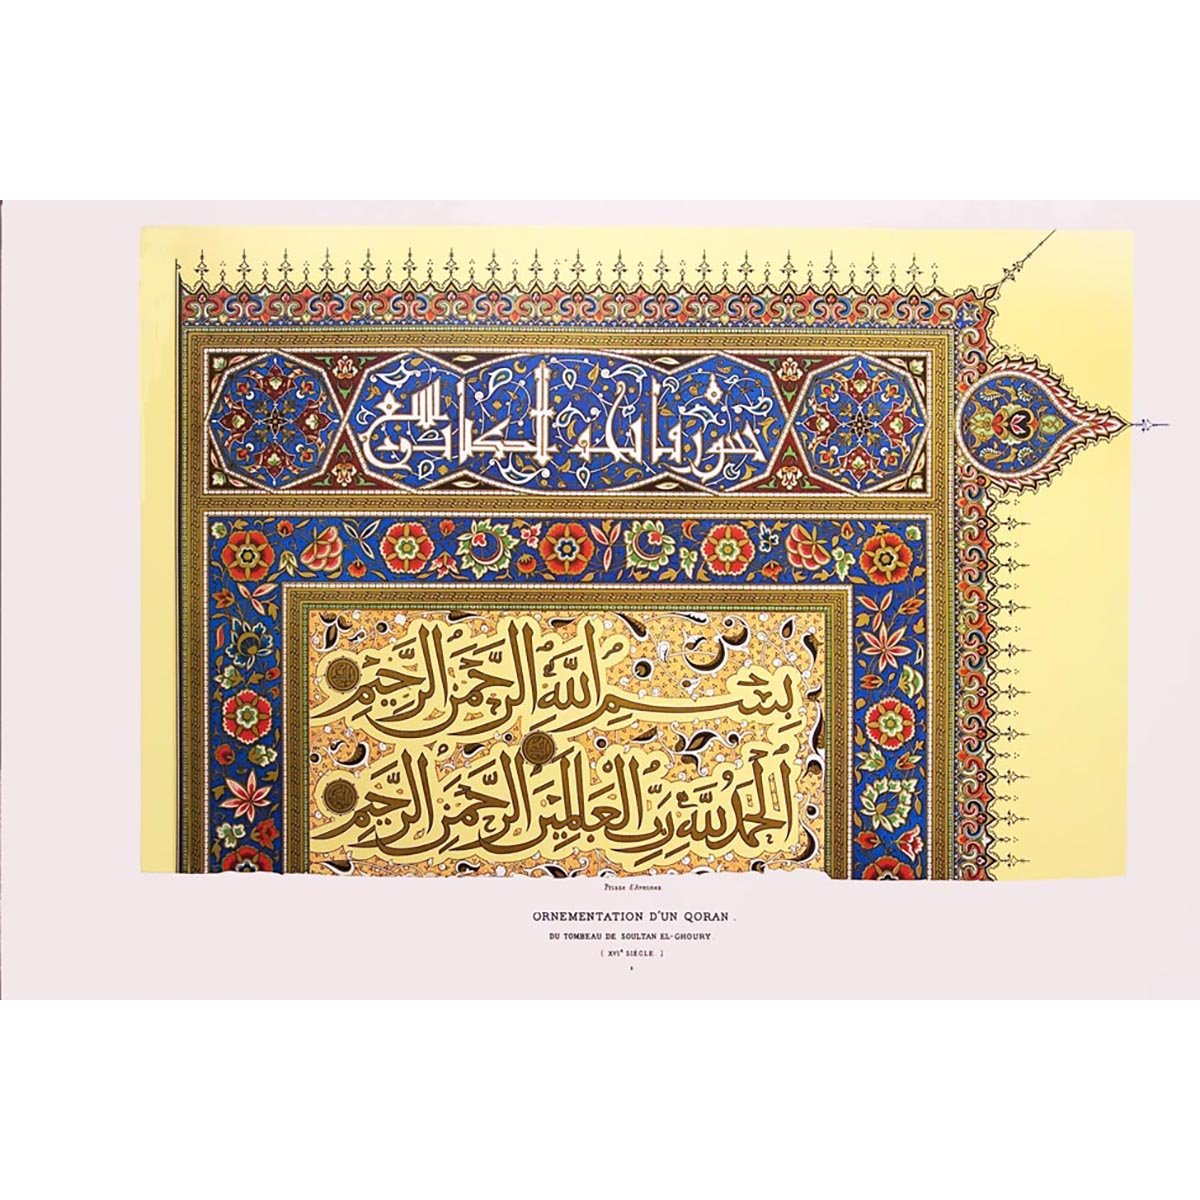 سورة فاتحة الكتاب
بِسْمِ اللَّهِ الرَّحْمَنِ الرَّحِيمِ
الْحَمْدُ لِلَّهِ رَبِّ الْعَالَمِينَ الرَّحْمَنِ الرَّحِيمِ
Prisse d'Avennes
ORNEMENTATION D'UN QORAN .
DU TOMBEAU DE SOULTAN EL-GHOURY.
( XVIᵉ SIÈCLE. )